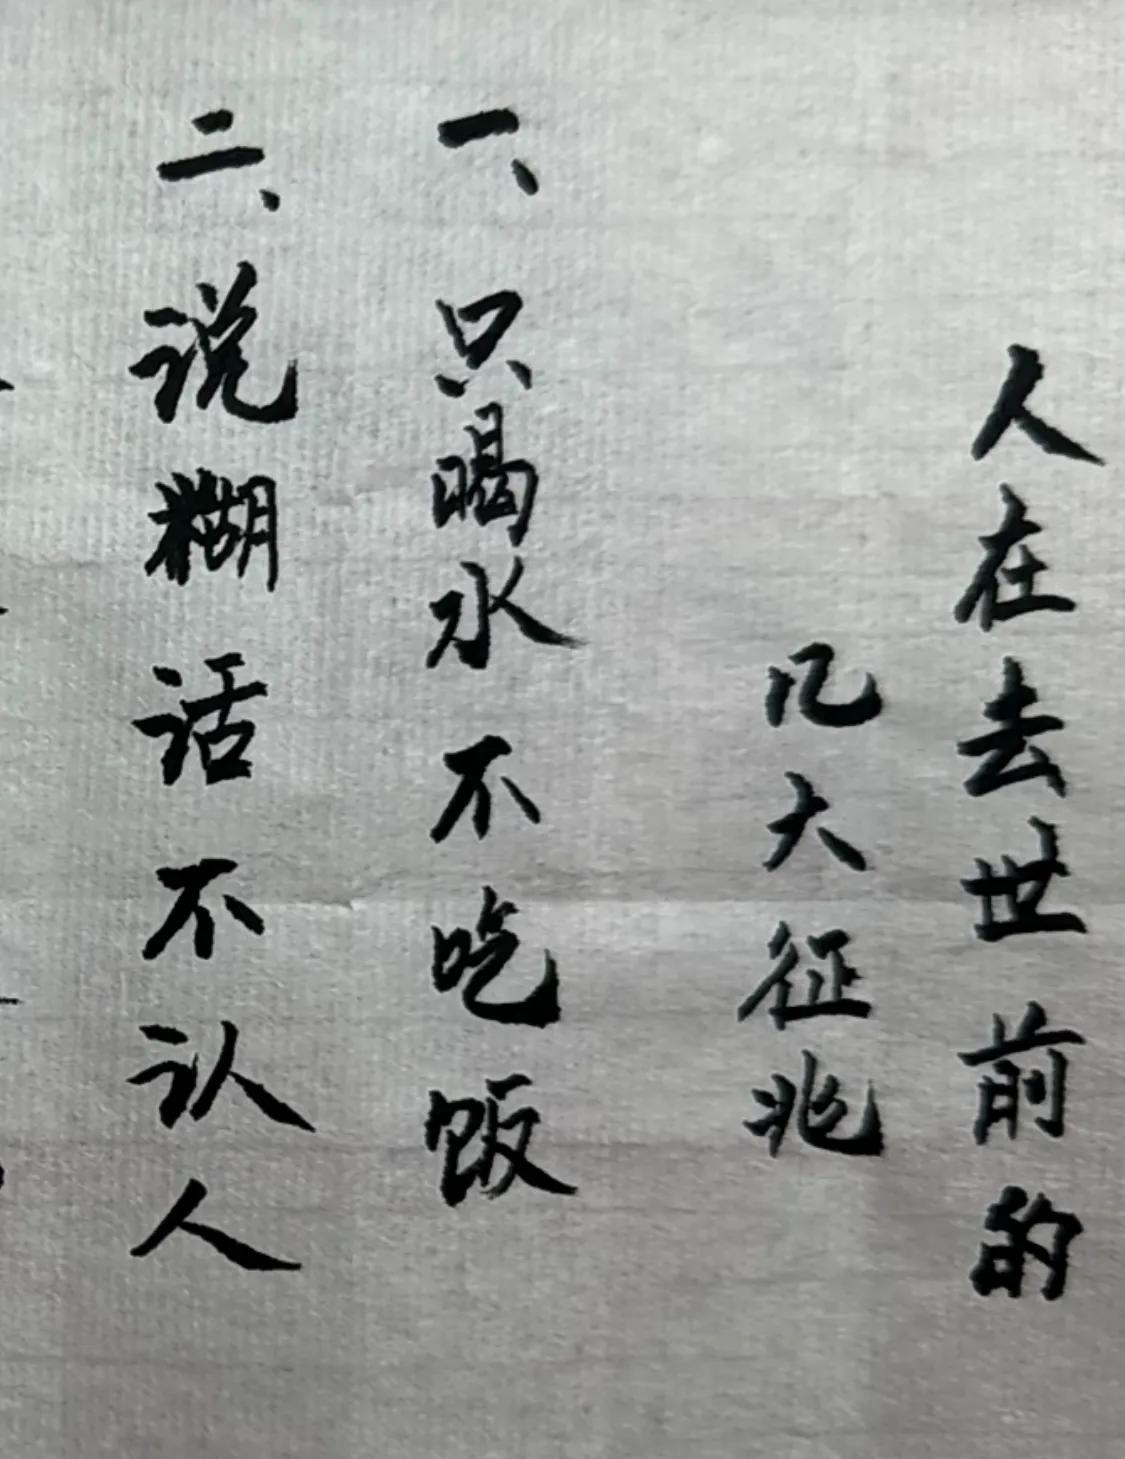 人在去世前的
几大征兆
一、只喝水不吃饭
二、说糊话不认人